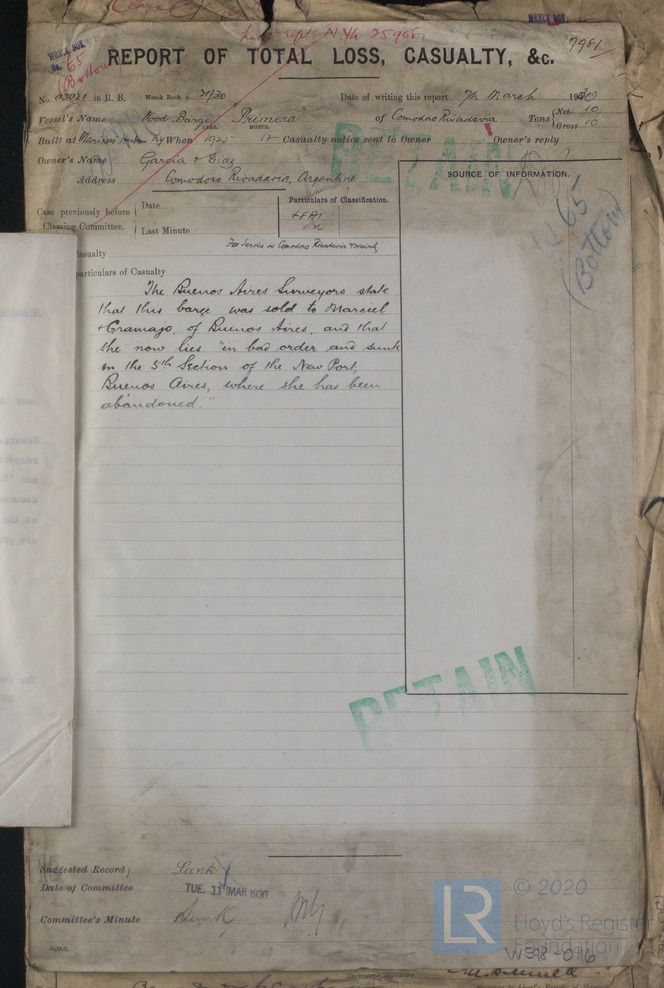 WRECK BOX
No. 65
(Bottom)
WRECK BOX
7981
REPORT OF TOTAL LOSS, CASUALTY, &c.
No. 03021 in R. B. Wreck Book, p. 21/30 Date of writing this report 7th March 1930
Vessel's Name Wood Barge "Primera of Comodoro Rivadavia Tons Net 10 Gross 10
Built at When YEAR. 1925 MONTH. 12 Casualty notice sent to Owner Owner's reply
Owner's Name Garcia & Diaz
Address Comodoro Rivadavia, Argentine
SOURCE OF INFORMATION.
RETAIN
W 65
(Bottom)
Case previously before Classing Committee.
Date
Last Minute
Particulars of Classification.
For Service at Comodoro Rivadavia & vicinity
asualty
articulars of Casualty
The Buenos Aires Surveyors state
that this barge was sold to Marciel
& Gramajo, of Buenos Aires, and that
she now lies "in bad order and sunk
in the 5th Section of the New Port,
Buenos Aires, where she has been
abandoned."
RETAIN
Suggested Record Sunk
Date of Committee TUE. 11 MAR 1930
Committee's Minute Sunk
LR © 2020
Lloyd's Register
Foundation
W398-0116